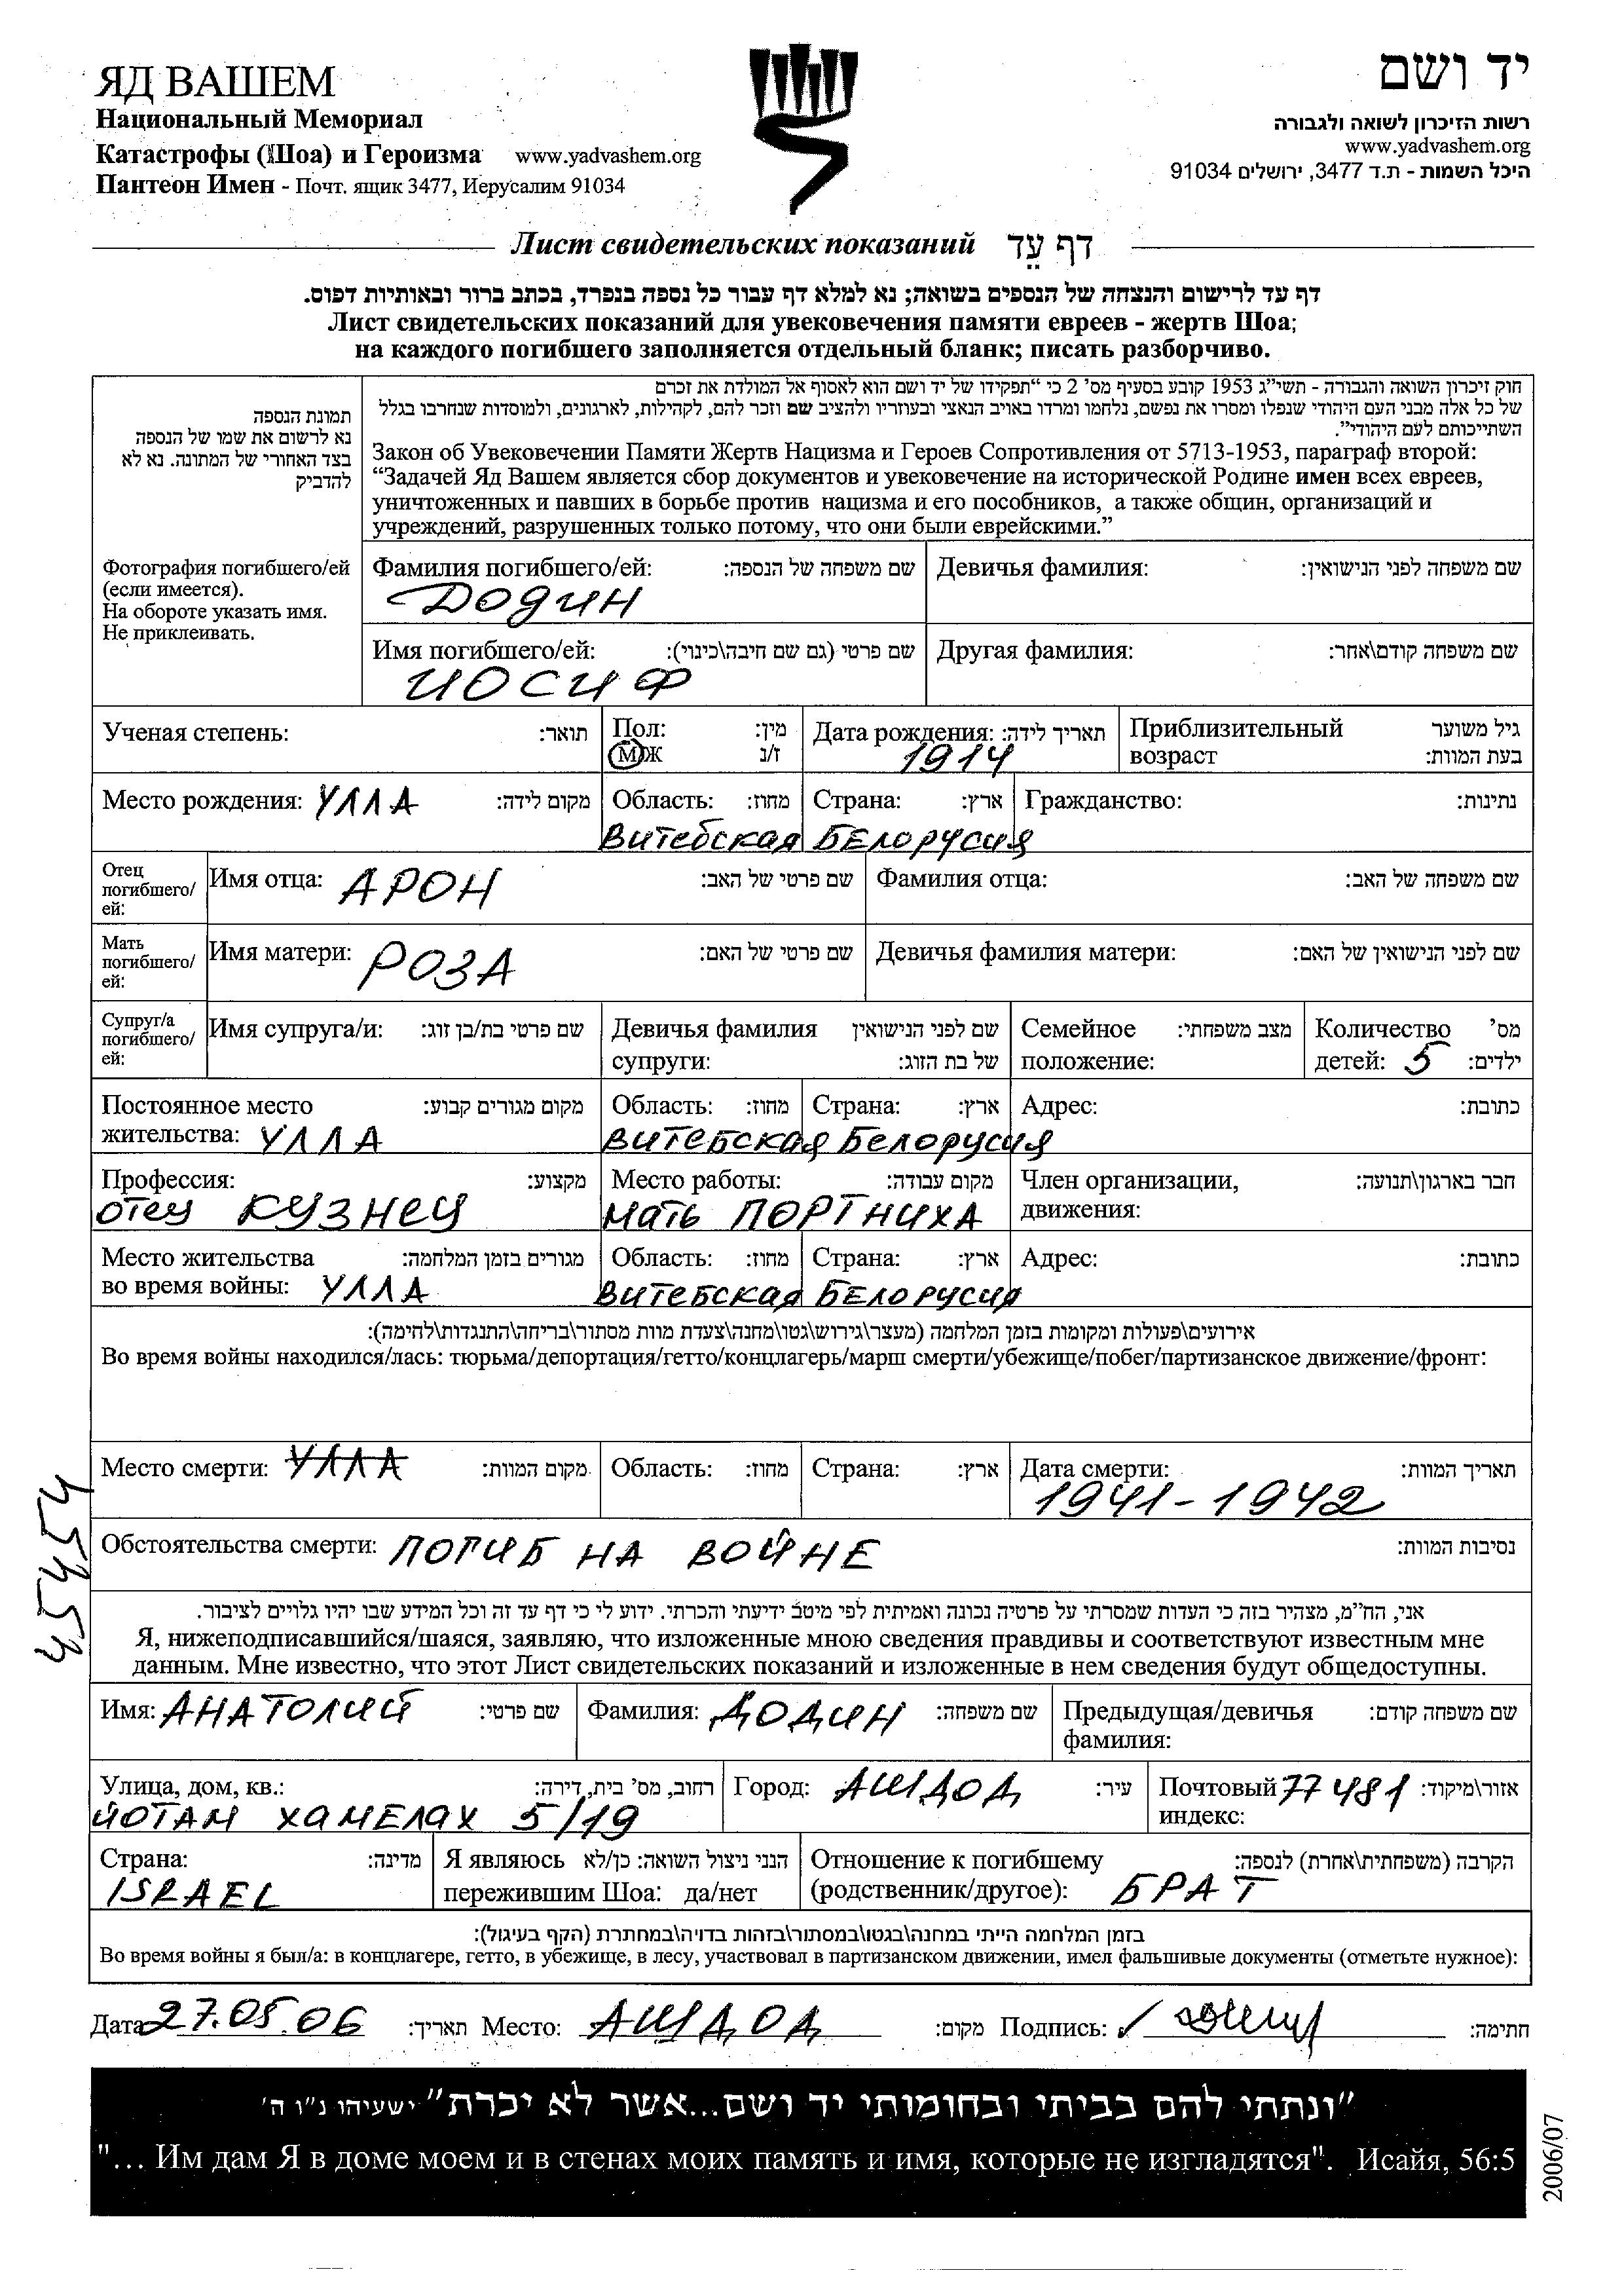 ЯД ВАШЕМ
Национальный Мемориал
Катастрофы (Шоа) и Героизма www.yadvashem.org
Пантеон Имен - Почт. ящик 3477, Иерусалим 91034
יד ושם
רשות הזיכרון לשואה ולגבורה
www.yadvashem.org
היכל השמות - ת.ד 3477, ירושלים 91034
Лист свидетельских показаний דף עֵד
דף עד לרישום והנצחה של הנספים בשואה; נא למלא דף עבור כל נספה בנפרד, בכתב ברור ובאותיות דפוס.
Лист свидетельских показаний для увековечения памяти евреев - жертв Шоа;
на каждого погибшего заполняется отдельный бланк; писать разборчиво.
תמונת הנספה
נא לרשום את שמו של הנספה
בצד האחורי של המתונה. נא לא
להדביק
Фотография погибшего/ей
(если имеется).
На обороте указать имя.
Не приклеивать.
חוק זיכרון השואה והגבורה - תשי"ג 1953 קובע בסעיף מס' 2 כי "תפקידו של יד ושם הוא לאסוף אל המולדת את זכרם
של כל אלה מבני העם היהודי שנפלו ומסרו את נפשם, נלחמו ומרדו באויב הנאצי ובעוזריו ולהציב שם וזכר להם, לקהילות, לארגונים, ולמוסדות שנחרבו בגלל
השתייכותם לעם היהודי".
Закон об Увековечении Памяти Жертв Нацизма и Героев Сопротивления от 5713-1953, параграф второй:
“Задачей Яд Вашем является сбор документов и увековечение на исторической Родине имен всех евреев,
уничтоженных и павших в борьбе против нацизма и его пособников, а также общин, организаций и
учреждений, разрушенных только потому, что они были еврейскими.”
Фамилия погибшего/ей: שם משפחה של הנספה: Девичья фамилия: שם משפחה לפני הנישואין:
Додин
Имя погибшего/ей: שם פרטי (גם שם חיבה\כינוי): Другая фамилия: שם משפחה קודם\אחר:
ИОСИФ
Ученая степень: תואר: Пол: מין: Дата рождения: תאריך לידה: Приблизительный גיל משוער
М/Ж ז/נ 1914 возраст בעת המוות:
Место рождения: УЛЛА מקום לידה: Область: מחוז: Страна: ארץ: Гражданство: נתינות:
Витебская БЕЛОРУСИЯ
Отец
погибшего/
ей:
Имя отца: АРОН שם פרטי של האב: Фамилия отца: שם משפחה של האב:
Мать
погибшего/
ей:
Имя матери: РОЗА שם פרטי של האם: Девичья фамилия матери: שם לפני הנישואין של האם:
Супруг/а
погибшего/
ей:
Имя супруга/и: שם פרטי בת/בן זוג: Девичья фамилия שם לפני הנישואין Семейное מצב משפחתי: Количество מס'
супруги: של בת הזוג: положение: детей: 5 ילדים:
Постоянное место מקום מגורים קבוע: Область: מחוז: Страна: ארץ: Адрес: כתובת:
жительства: УЛЛА ВИТЕБСКАЯ БЕЛОРУСИЯ
Профессия: מקצוע: Место работы: מקום עבודה: Член организации, חבר בארגון\תנועה:
отец КУЗНЕЦ мать ПОРТНИХА движения:
Место жительства מגורים בזמן המלחמה: Область: מחוז: Страна: ארץ: Адрес: כתובת:
во время войны: УЛЛА ВИТЕБСКАЯ БЕЛОРУСИЯ
אירועים\פעולות ומקומות בזמן המלחמה (מעצר\גירוש\גטו\מחנה\צעדת מוות מסתור\בריחה\התנגדות\לחימה):
Во время войны находился/лась: тюрьма/депортация/гетто/концлагерь/марш смерти/убежище/побег/партизанское движение/фронт:
Место смерти: УЛЛА מקום המוות: Область: מחוז: Страна: ארץ: Дата смерти: תאריך המוות:
1941-1942
Обстоятельства смерти: ПОГИБ НА ВОЙНЕ נסיבות המוות:
אני, הח"מ, מצהיר בזה כי העדות שמסרתי על פרטיה נכונה ואמיתית לפי מיטב ידיעתי והכרתי. ידוע לי כי דף עד זה וכל המידע שבו יהיו גלויים לציבור.
Я, нижеподписавшийся/шаяся, заявляю, что изложенные мною сведения правдивы и соответствуют известным мне
данным. Мне известно, что этот Лист свидетельских показаний и изложенные в нем сведения будут общедоступны.
Имя: АНАТОЛИЙ שם פרטי: Фамилия: ДОДИН שם משפחה: Предыдущая/девичья שם משפחה קודם:
фамилия:
Улица, дом, кв.: רחוב, מס' בית, דירה: Город: АШДОД עיר: Почтовый 77481 אזור\מיקוד:
ЙОТАМ ХАМЕЛАХ 5/19 индекс:
Страна: מדינה: Я являюсь הנני ניצול השואה: כן/לא Отношение к погибшему הקרבה (משפחתית\אחרת) לנספה:
ISRAEL пережившим Шоа: да/нет (родственник/другое): БРАТ
בזמן המלחמה הייתי במחנה\בגטו\במסתור\בזהות בדויה\במחתרת (הקף בעיגול):
Во время войны я был/а: в концлагере, гетто, в убежище, в лесу, участвовал в партизанском движении, имел фальшивые документы (отметьте нужное):
Дата 27.05.06 תאריך: Место: АШДОД מקום: Подпись: חתימה:
"ונתתי להם בביתי ובחומותי יד ושם...אשר לא יכרת" ישעיהו נ"ו ה'
"... Им дам Я в доме моем и в стенах моих память и имя, которые не изгладятся". Исайя, 56:5
2006/07
45454